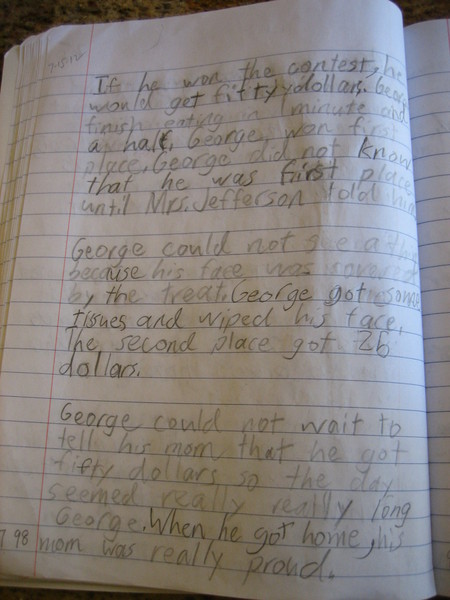 7.15.12
If he won the contest, he
would get fifty dollars. George
finish eating in 1 minute and
a half. George wan first
place. George did not know
that he was first place
until Mrs. Jefferson told him
George could not see a thing
because his face was covered
by the treat. George got some
tissues and wiped his face.
The second place got 26
dollars.
George could not wait to
tell his mom that he got
fifty dollars so the day
seemed really really long
George. When he got home, his
98 mom was really proud.